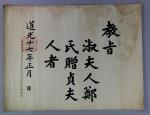 教旨
淑夫人鄭
氏贈貞夫
人者
道光十七年正月 日